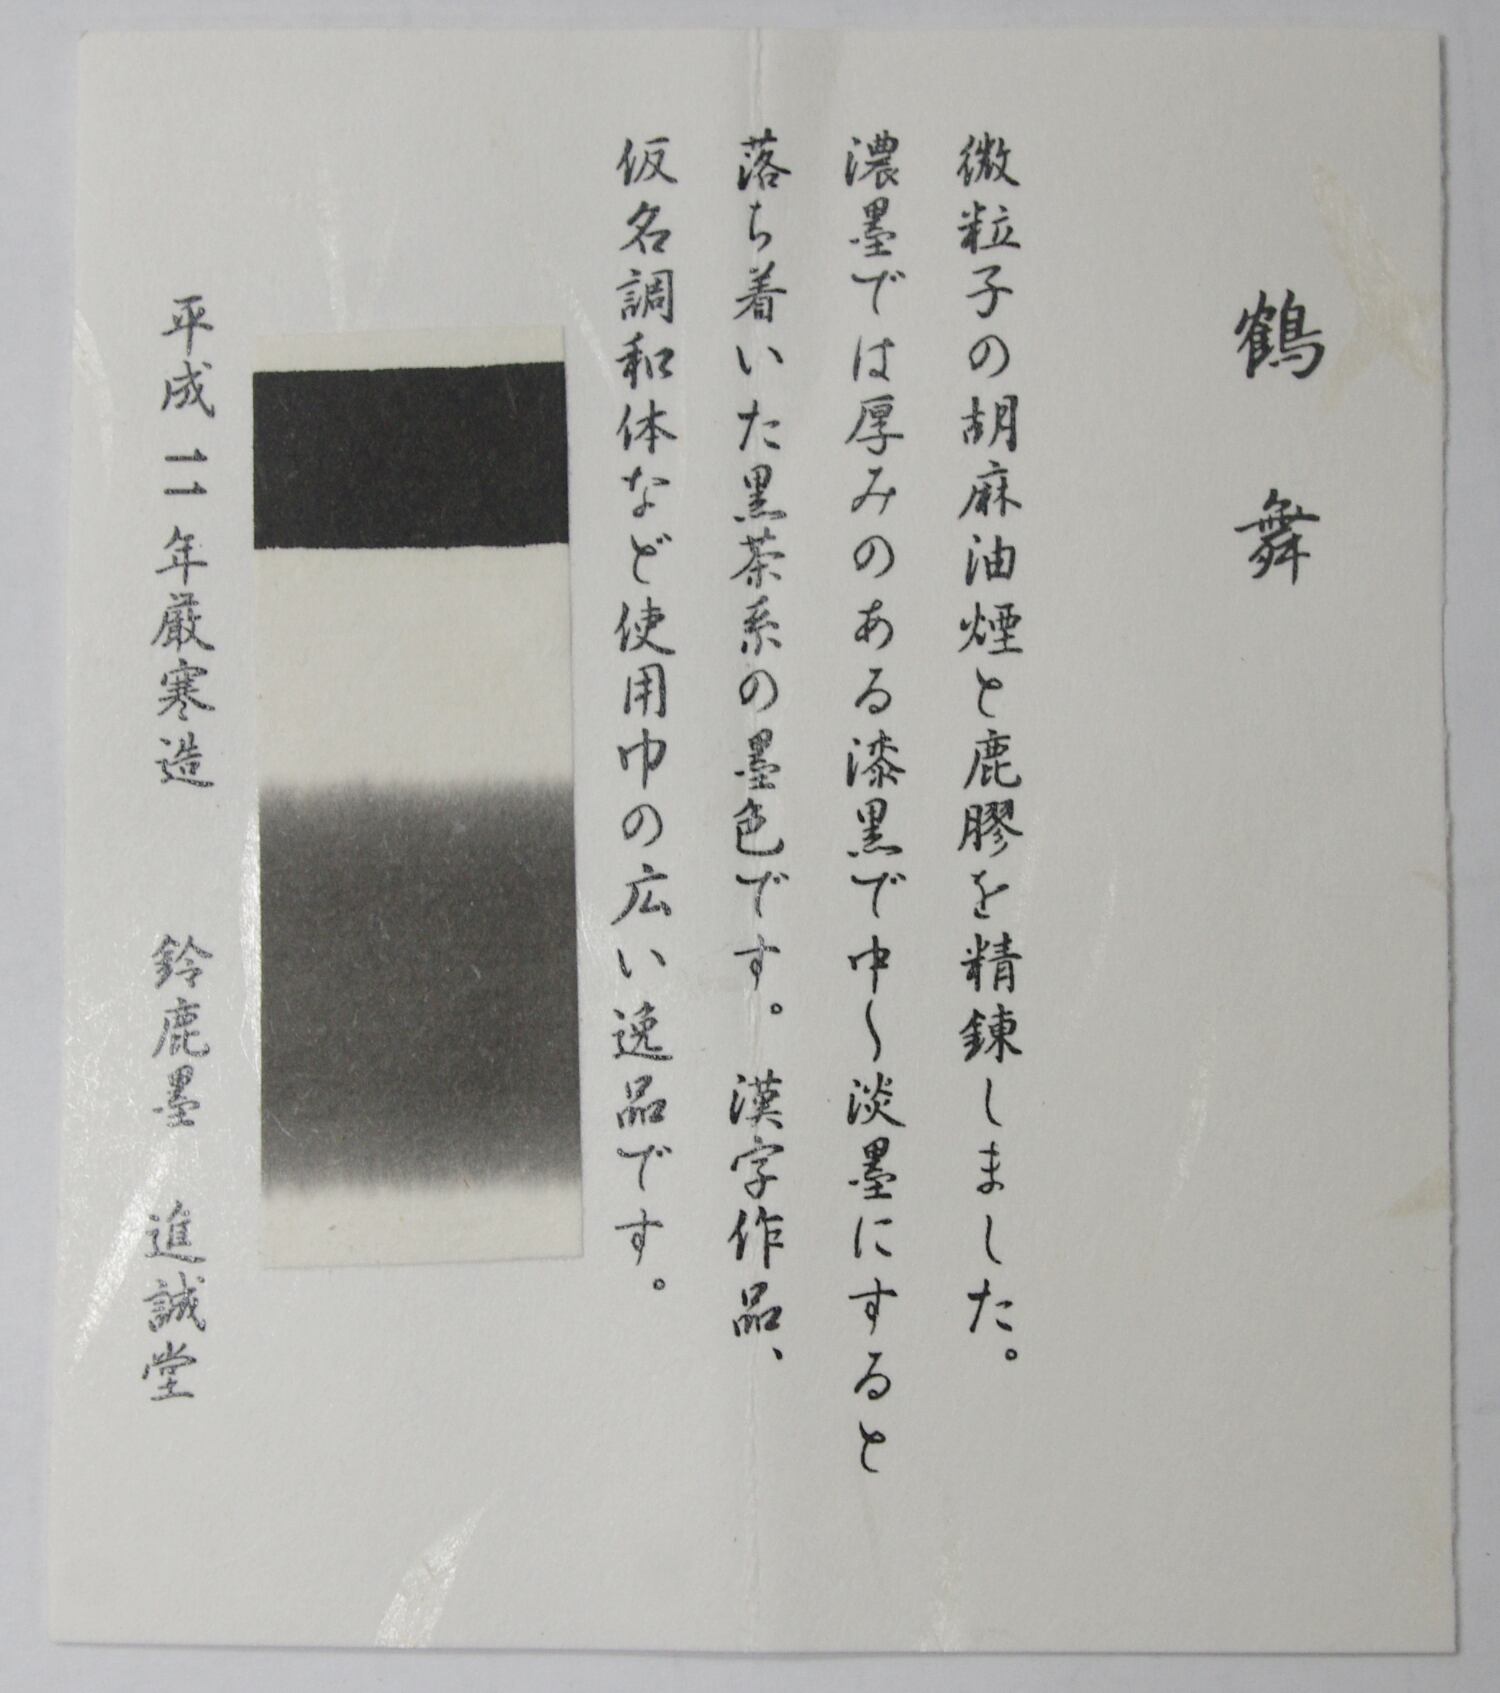 鶴舞
微粒子の胡麻油煙と鹿膠を精錬しました。
濃墨では厚みのある漆黒で中〜淡墨にすると
落ち着いた黒茶系の墨色です。漢字作品、
仮名調和体など使用巾の広い逸品です。
平成一一年厳寒造 鈴鹿墨 進誠堂